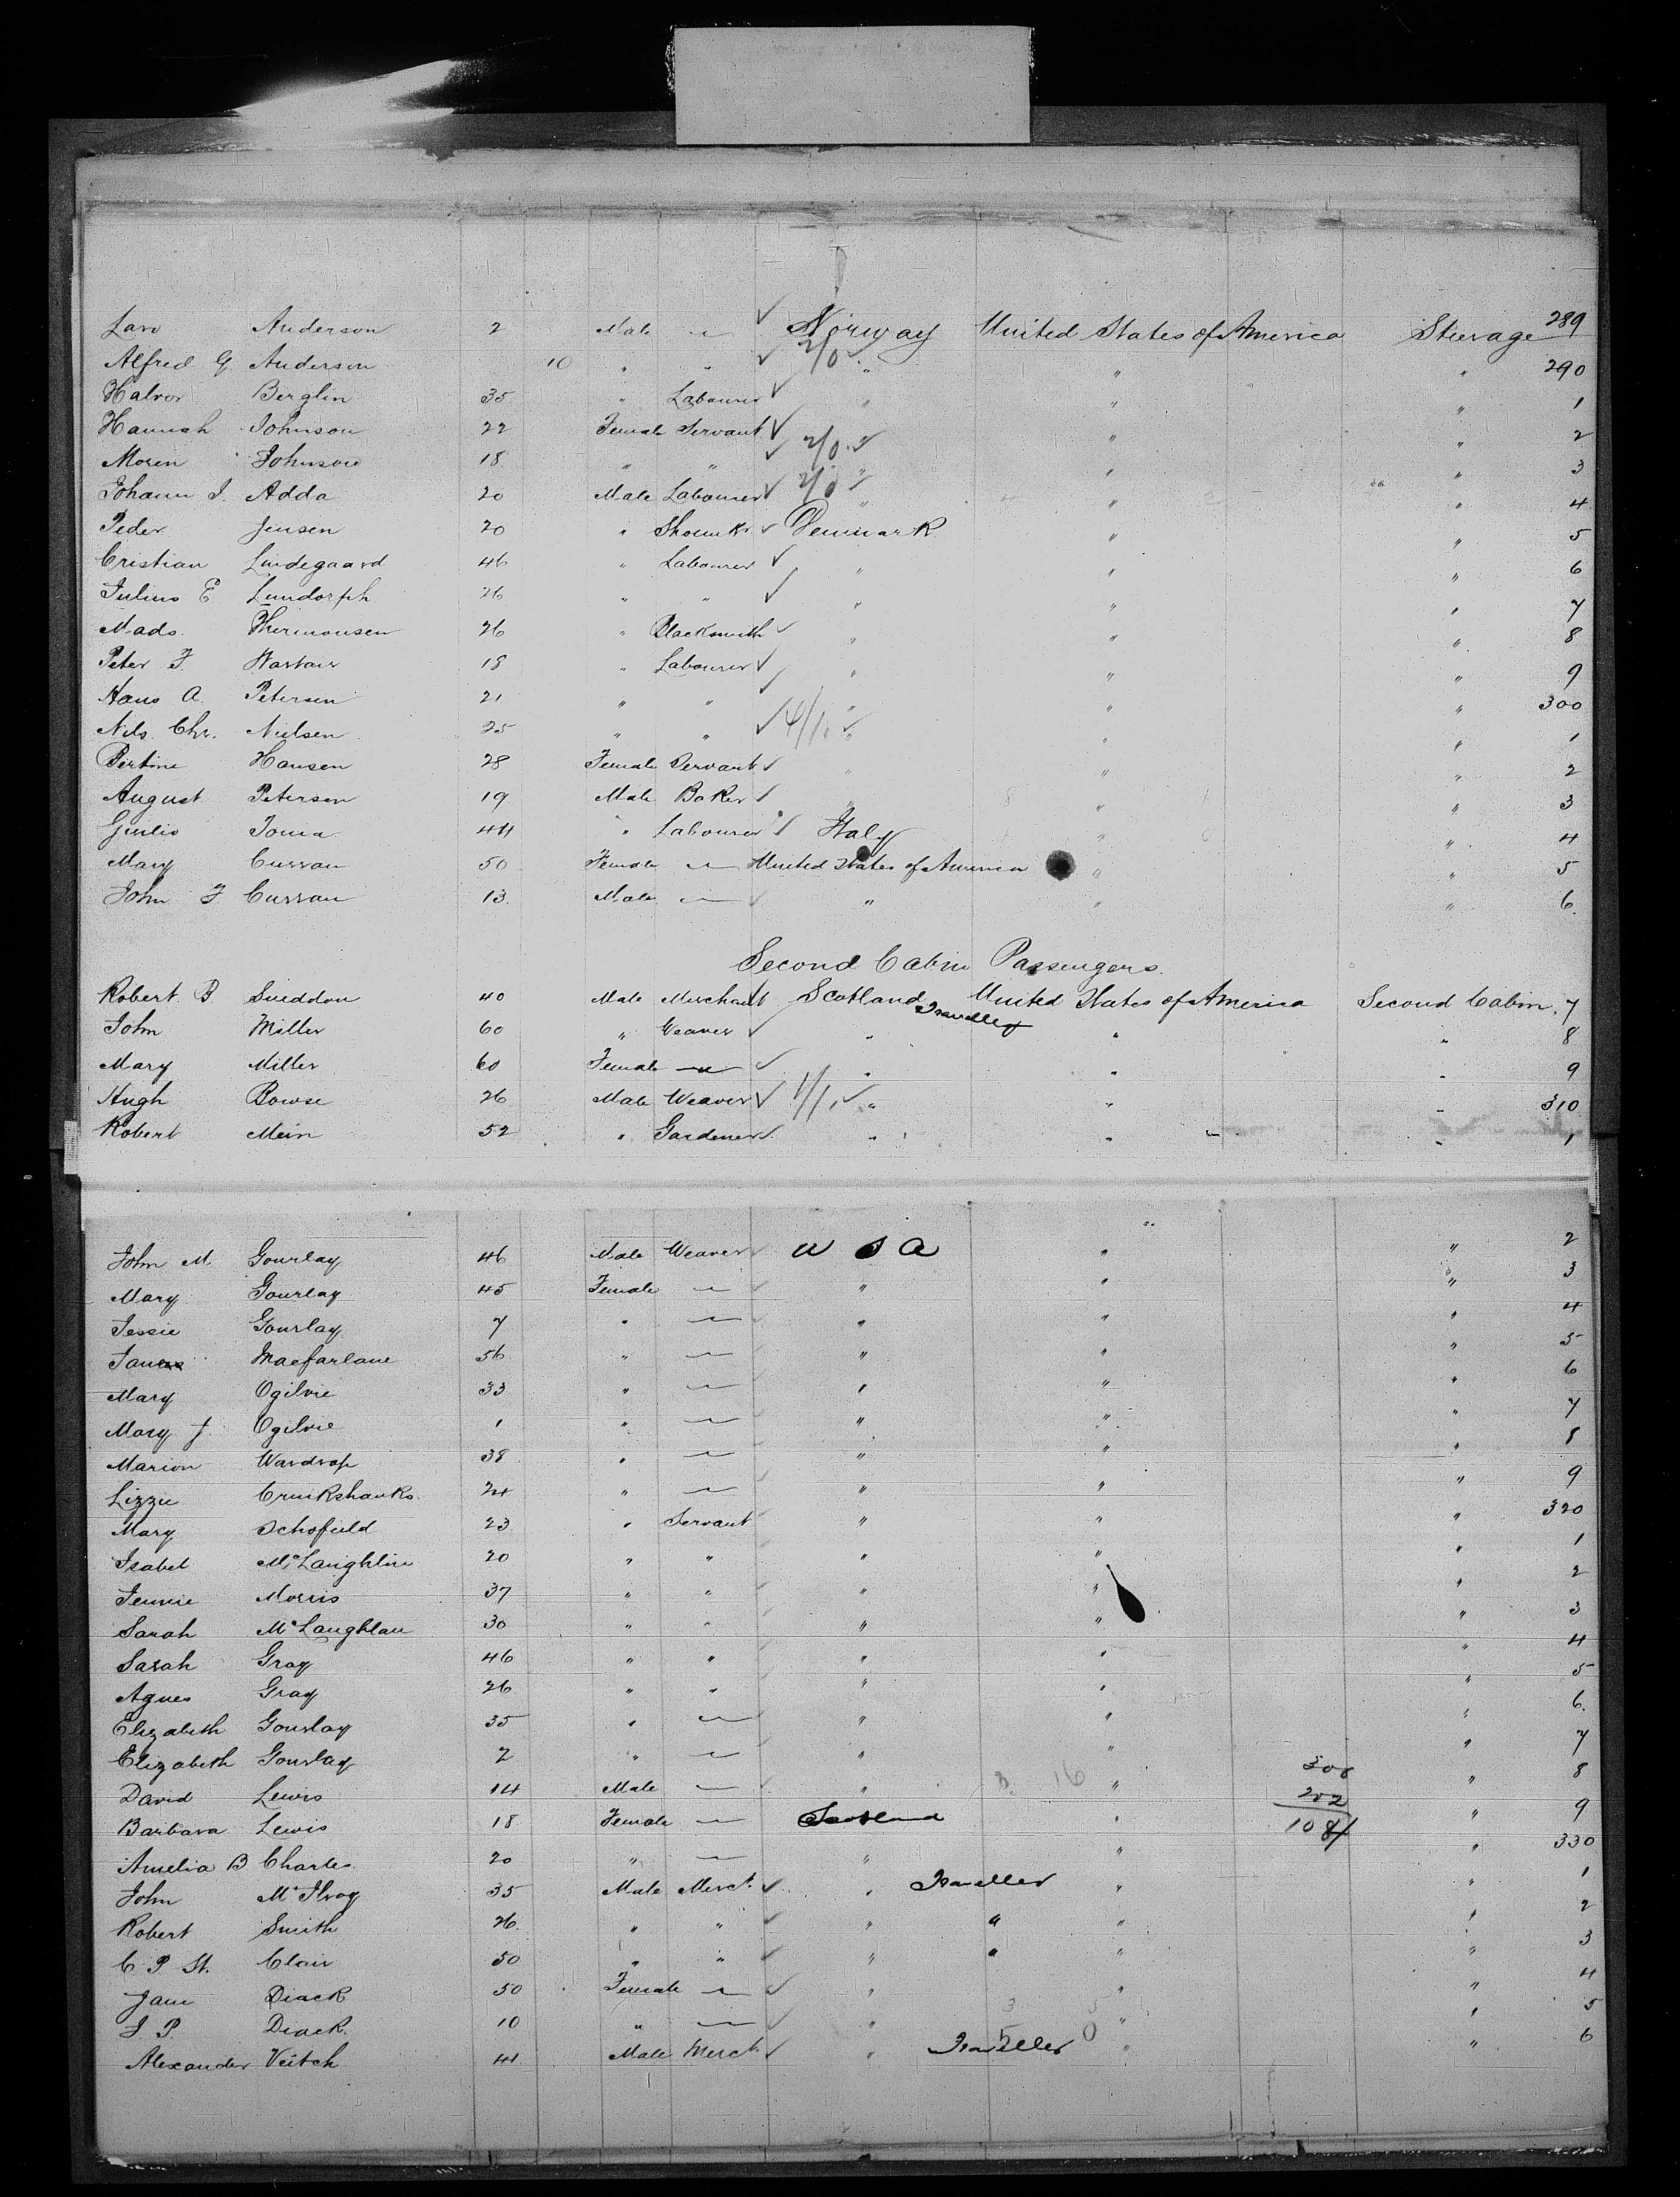 Lars Anderson 2 Male " Norway United States of America Steerage 289
Alfred G Anderson 10 " " 2/0 " " " 290
Halvor Berglin 35 " Labourer " " " 1
Hannah Johnson 22 Female Servant " " 2
Moren Johnson 18 " " 2/0 " " " 3
Johann J. Adda 20 Male Labourer 2/0 " " " 4
Peder Jensen 20 " Shoemkr Denmark " " 5
Cristian Lindegaard 46 " Labourer " " " 6
Julius E Lundorph 26 " " " " " 7
Mads Thermousen 26 " Blacksmith " " " 8
Peter F. 18 " Labourer " " " 9
Hans A. Petersen 21 " " " " " 300
Nils Chr. Nielsen 25 " " 4/1 " " " 1
Bertine Hansen 28 Female Servant " " " 2
August Petersen 19 Male Baker " " " 3
Giulio Toma 44 " Labourer Italy " " 4
Mary Curran 50 Female " United States of America " " 5
John F Curran 13 Male " " " " 6
Second Cabin Passengers.
Robert B Sneddon 40 Male Merchant Scotland United States of America Second Cabin. 7
Traveller
John Miller 60 " Weaver " " " 8
Mary Miller 60 Female " " " " 9
Hugh Bowse 26 Male Weaver 1/1 " " " 310
Robert Mein 52 " Gardener " " " 1
John M. Gourlay 46 Male Weaver U S A " " 2
Mary Gourlay 45 Female " " " " 3
Jessie Gourlay 7 " " " " " 4
Jane Macfarlane 56 " " " " " 5
Mary Ogilvie 33 " " " " " 6
Mary J. Ogilvie 1 " " " " " 7
Marion Wardrop 38 " " " " " 8
Lizzie Cruikshanks 24 " " " " " 9
Mary Schofield 23 " Servant " " " 320
Isabel McLaughlin 20 " " " " " 1
Jennie Morris 37 " " " " " 2
Sarah McLaughlan 30 " " " " " 3
Sarah Gray 46 " " " " " 4
Agnes Gray 26 " " " " " 5
Elizabeth Gourlay 35 " " " " " 6
Elizabeth Gourlay 2 " " " " " 7
David Lewis 14 Male " " 16 " 308 " 8
202
Barbara Lewis 18 Female " Scotland " 108/ " 9
Amelia B Charles 20 " " " " " 330
John McIlroy 35 Male Merct. " Traveller " " 1
Robert Smith 26 " " " " " " 2
C P St. Clair 50 " " " " " " 3
Jane Diack 50 Female " " " " 4
J. P. Diack 10 " " " " " 5
Alexander Veitch 41 Male Merct " Traveller " " 6